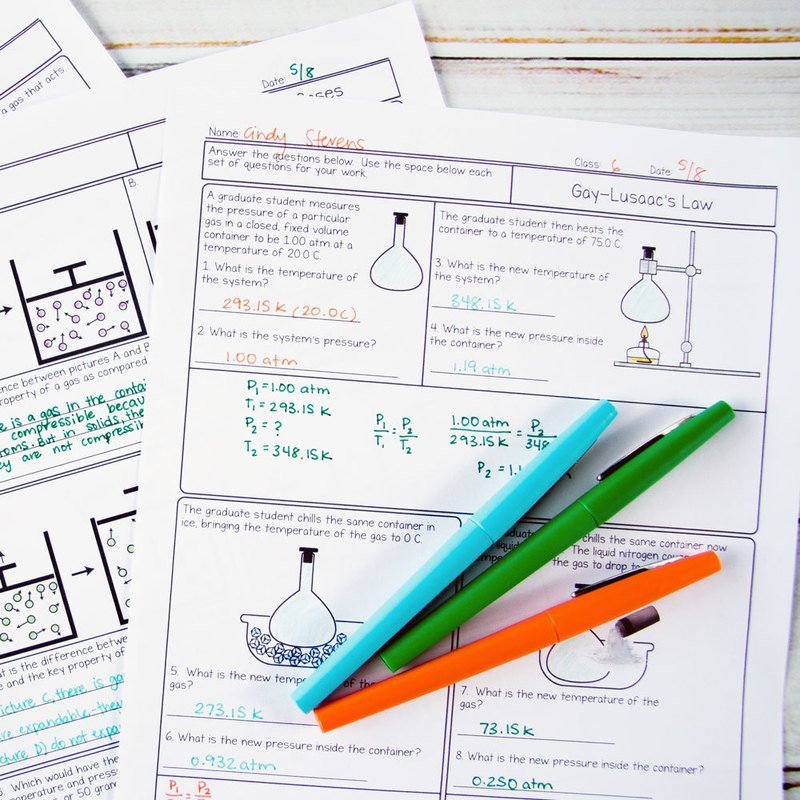 a gas that acts
Date: 5/8
Name: Andy Stevens
Class: 6 Date: 5/8
Answer the questions below. Use the space below each
set of questions for your work.
Gay-Lusaac's Law
A graduate student measures
the pressure of a particular
gas in a closed, fixed volume
container to be 1.00 atm at a
temperature of 20.0 C.
1. What is the temperature of
the system?
293.15 K (20.0C)
2. What is the system's pressure?
1.00 atm
The graduate student then heats the
container to a temperature of 75.0 C.
3. What is the new temperature of
the system?
348.15 K
4. What is the new pressure inside
the container?
1.19 atm
P₁ = 1.00 atm
T₁ = 293.15 K
P₂ = ?
T₂ = 348.15K
P₁/T₁ = P₂/T₂
1.00 atm/293.15 K = P₂/348
P₂ = 1.1
The graduate student chills the same container in
ice, bringing the temperature of the gas to 0 C.
5. What is the new of the
gas?
273.15 K
6. What is the new pressure inside the container?
0.932 atm
P₁ = P₂
chills the same container now
The liquid nitrogen
the gas to drop to
7. What is the new temperature of the
gas?
73.15K
8. What is the new pressure inside the container?
0.250 atm
B.
between pictures A and B
property of a gas as compared
is a gas in the
compressible
But in solids, the
are not
is the difference between
and the key property of
picture C, there is
expandable - 
D) do not
Which would have the
temperature and
or 50 gram